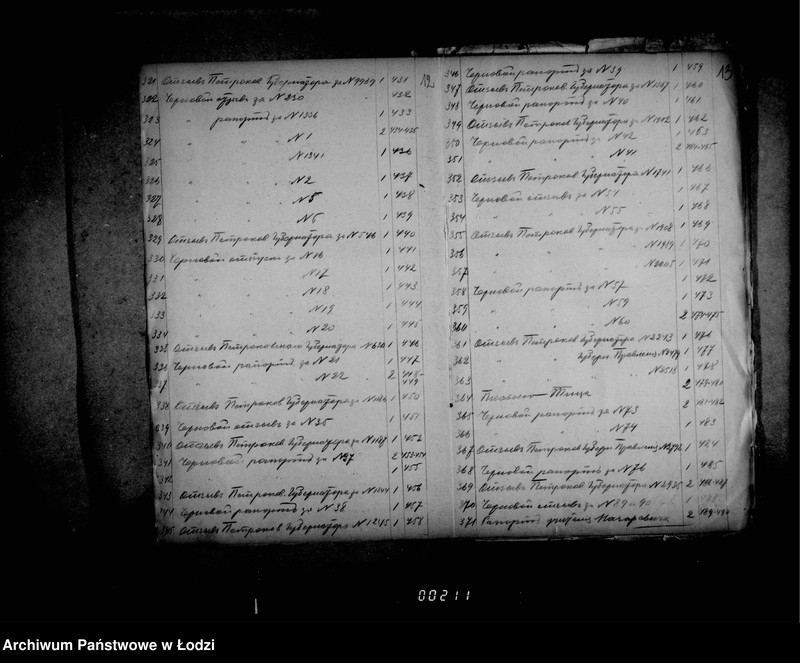 12
321 Отзывъ Петроков Губернатора за № 9969 1 431
322 Черновой отзывъ за № 230 432
323 „ рапортъ за № 1336 1 433
324 „ „ № 1 2 434-435
325 „ „ № 1341 1 436
326 „ „ № 2 1 437
327 „ „ № 5 1 438
328 „ „ № 6 1 439
329 Отзывъ Петроков Губернатора за № 546 1 440
330 Черновой отпускъ за № 16 1 441
331 „ „ № 17 1 442
332 „ „ № 18 1 443
333 „ „ № 19 1 444
334 „ „ № 20 1 445
335 Отзывъ Петроковского Губернатора 1 446
336 Черновой рапортъ за № 21 1 447
337 „ „ № 22 2 448-449
338 Отзывъ Петроков Губернатора за 1 450
339 Черновой отзывъ за № 35 1 451
340 Отзывъ Петроков Губернатора за 1 452
341 Черновой рапортъ за 2 453-454
342 1 455
343 Отзывъ Петроков. Губернатора за № 1244 1 456
344 Черновой рапортъ за № 38 1 457
345 Отзывъ Петроков Губернатора № 1245 1 458
13
346 Черновой рапортъ за № 39 1 459
347 Отзывъ Петроков Губернатора за 1 460
348 Черновой рапортъ за № 40 1 461
349 Отзывъ Петроков Губернатора за 1 462
350 Черновой рапортъ за № 42 1 463
351 „ „ № 41 2 464-465
352 Отзывъ Петроков Губернатора № 1741 1 466
353 Черновой отзывъ за № 54 1 467
354 „ „ № 55 1 468
355 Отзывъ Петроков Губернатора № 1908 1 469
356 „ „ № 1989 1 470
357 „ „ № 2005 1 471
358 Черновой рапортъ за № 57 1 472
359 „ „ № 59 1 473
360 „ „ № 60 2 474-475
361 Отзывъ Петроков Губернатора № 2213 1 476
362 „ „ Губерн. Правленія 1 477
363 „ „ № 2518 1 478
364 2 479-480
365 Черновой рапортъ за № 73 2 481-482
366 „ „ № 74 1 483
367 Отзывъ Петроков Губерн Правленія 1 484
368 Черновой рапортъ за № 76 1 485
369 Отзывъ Петроков Губернатора № 2925 2 486-487
370 Черновой отзывъ за 1 488
371 Рапортъ учителя 2 489-490
00211
Archiwum Państwowe w Łodzi